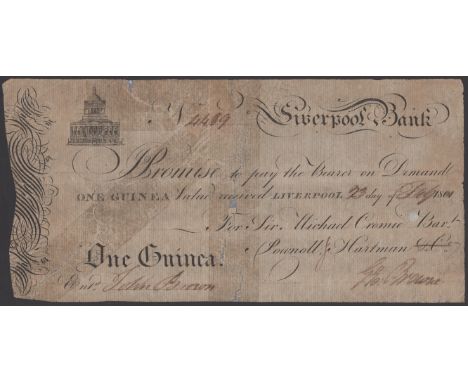 No. 4469 Liverpool Bank
I Promise to pay the Bearer on Demand
ONE GUINEA Value received LIVERPOOL 23 day of July 1801
For Sir Michael Cromie Bar.t
Pownoll & Hartman & Co.
One Guinea.
Ent.d John Brown